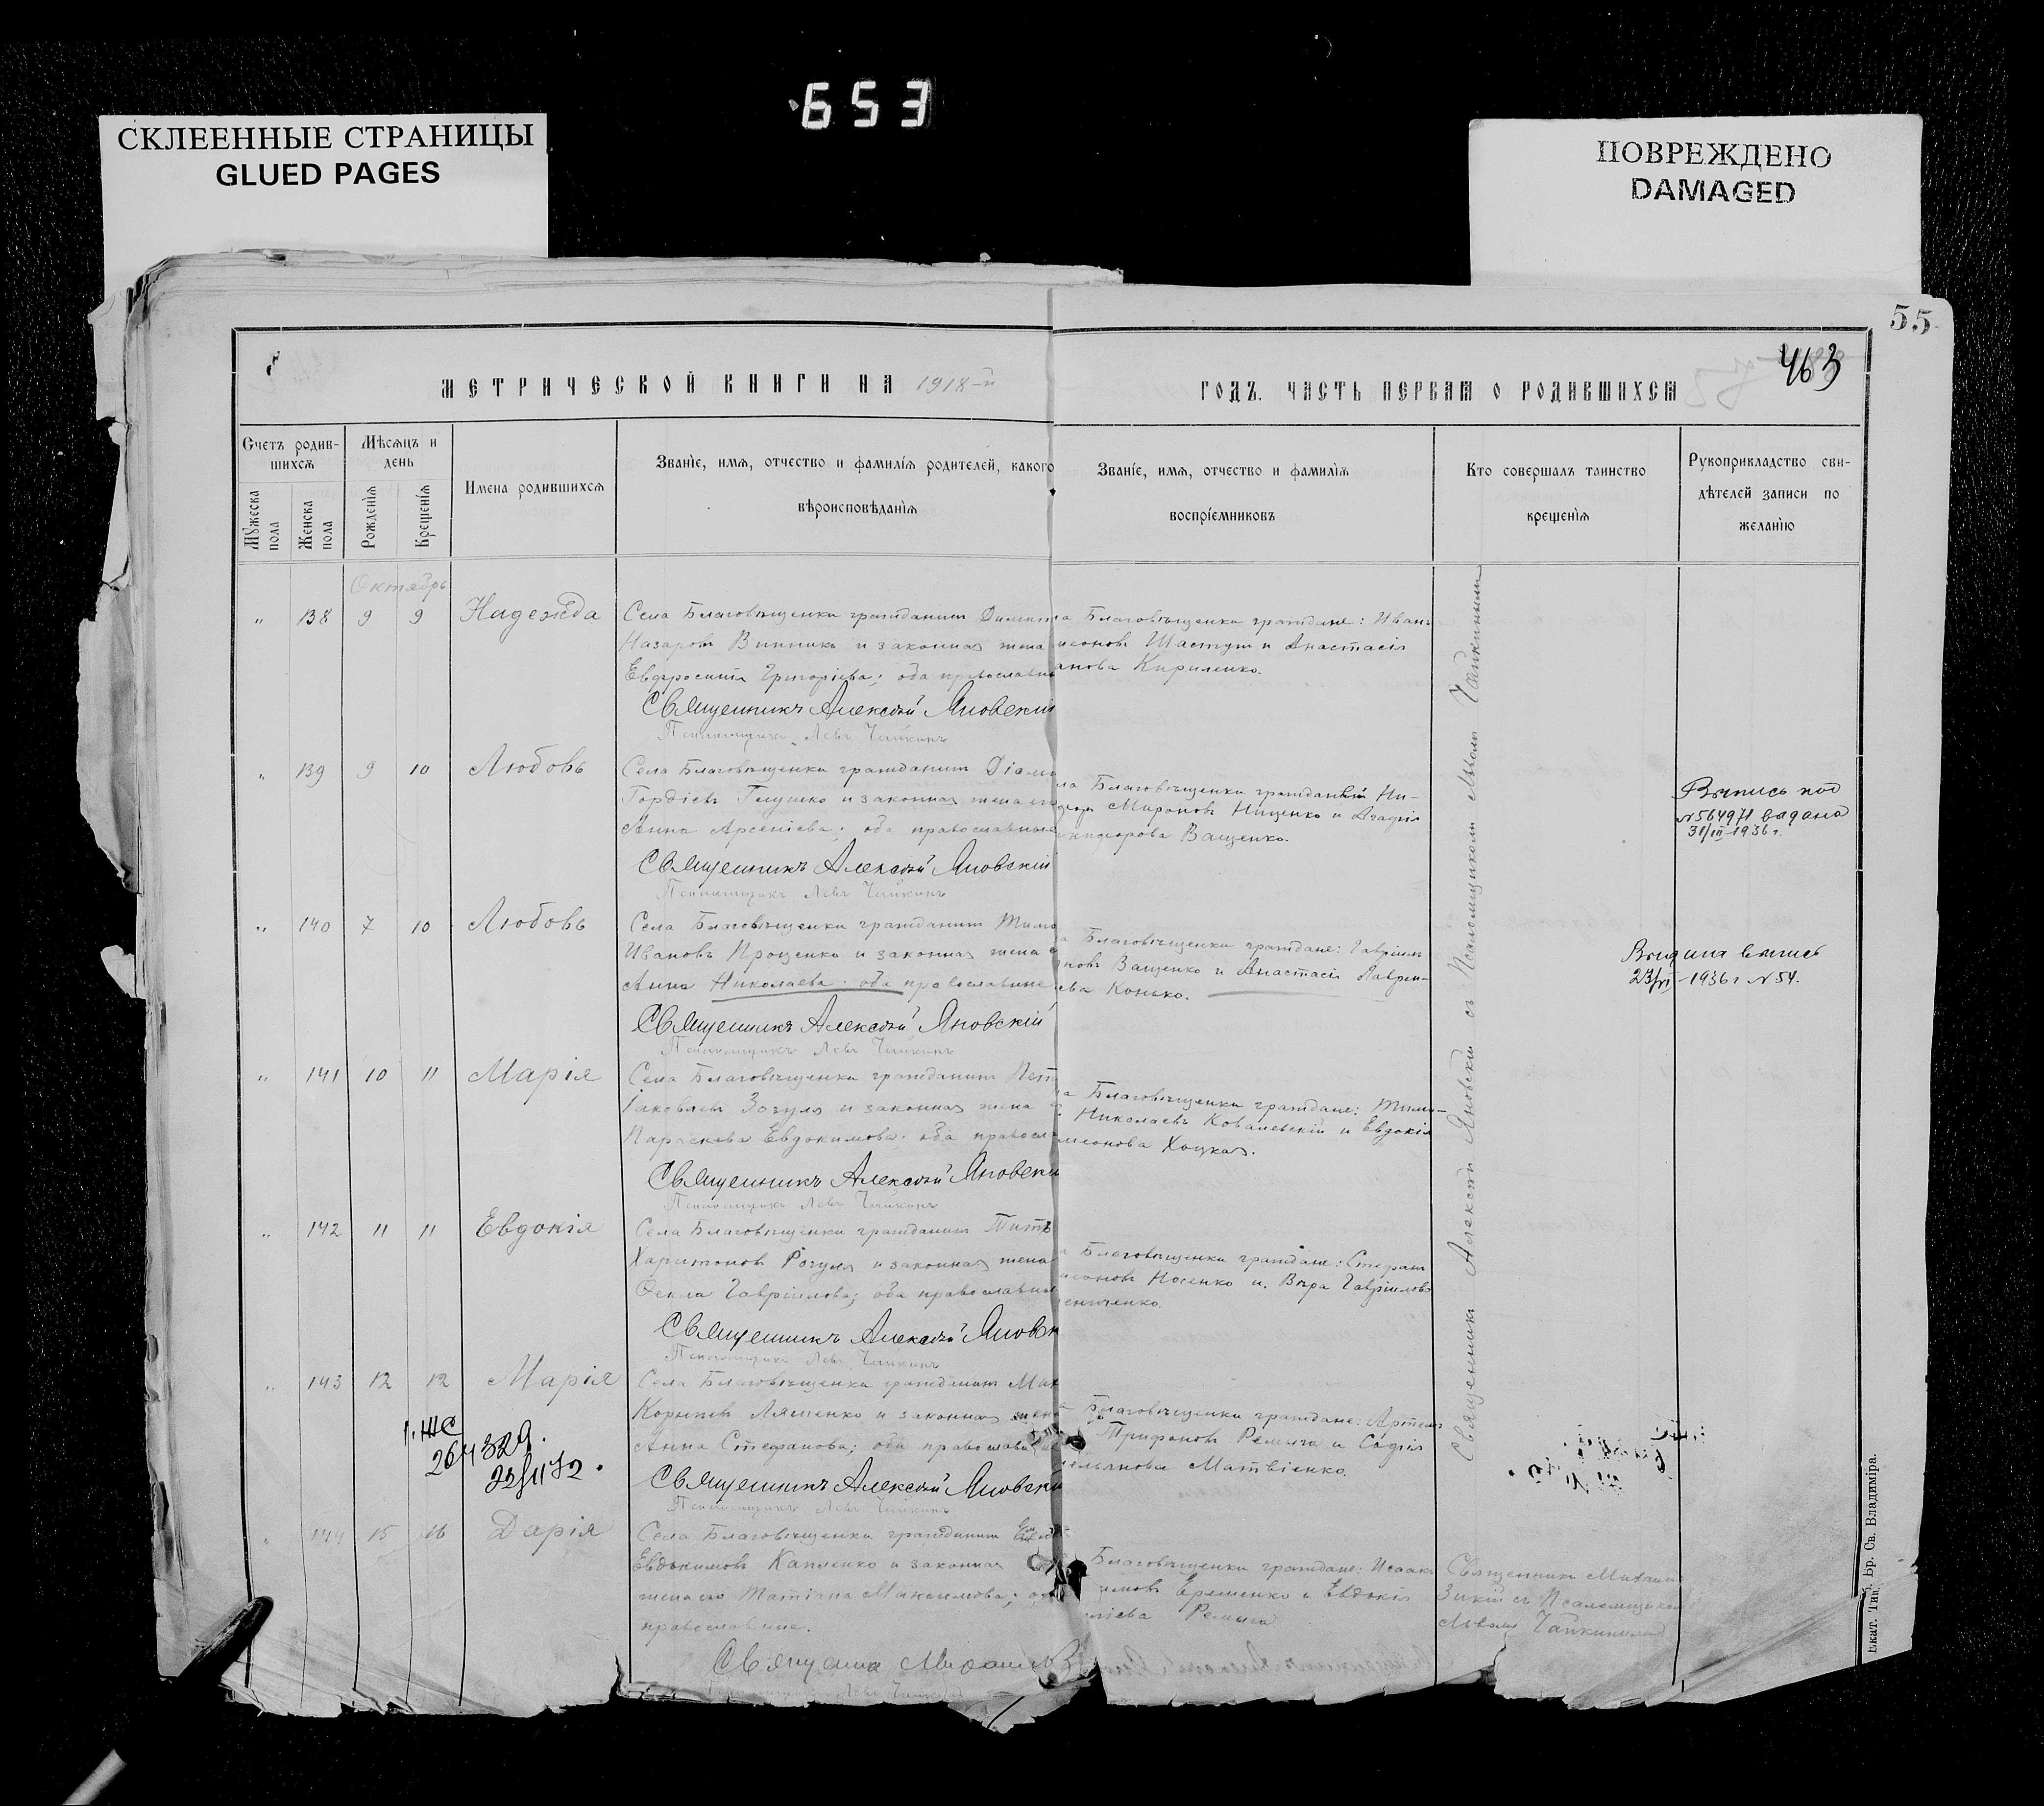 653
СКЛЕЕННЫЕ СТРАНИЦЫ
GLUED PAGES
ПОВРЕЖДЕНО
DAMAGED
55
463
МЕТРИЧЕСКОЙ КНИГИ НА 1918-й
ГОДЪ. ЧАСТЬ ПЕРВАЯ О РОДИВШИХСЯ
Счетъ родив-
шихся
Мужеска пола
Женска пола
Мѣсяцъ и
день
Рожденія
Крещенія
Имена родившихся
Званіе, имя, отчество и фамилія родителей, какого
вѣроисповѣданія
Званіе, имя, отчество и фамилія
воспріемниковъ
Кто совершалъ таинство
крещенія
Рукоприкладство сви-
дѣтелей записи по
желанію
Октябрь
" 138 9 9 Надежда
Села Благовѣщенки гражданинъ
Назаровъ Винникъ и законная жена
Евфросинія Григоріева; оба православн
Священникъ Алексѣй Яновскій
Псаломщикъ Левъ Чайкинъ
а Благовѣщенки граждане: Иванъ
меоновъ Шастунъ и Анастасія
анова Кириленко.
" 139 9 10 Любовь
Села Благовѣщенки гражданинъ
Гордіевъ Глушко и законная жена его
Анна Арсеніева; оба православные
Священникъ Алексѣй Яновскій
Псаломщикъ Левъ Чайкинъ
ла Благовѣщенки граждане: Ни-
Мироновъ Ященко и
Ващенко.
Выпись под
№564971 выдана
31/III-1936 г.
" 140 7 10 Любовь
Села Благовѣщенки гражданинъ Тимо
Ивановъ Проценко и законная жена е
Анна Николаева; оба православные
Священникъ Алексѣй Яновскій
Псаломщикъ Левъ Чайкинъ
а Благовѣщенки граждане: Гавріилъ
новъ Ващенко и Анастасія Лаврен-
ева Конько.
Выдана выпись
23/VI-1936 г №54.
" 141 10 11 Марія
Села Благовѣщенки гражданинъ Пет
Іаковлевъ Зозуля и законная жена
Параскева Евдокимова; оба правосла
Священникъ Алексѣй Яновскі
Псаломщикъ Левъ Чайкинъ
а Благовѣщенки граждане: Тимо-
Николаевъ Ковалевскій и Евдокія
меонова Хоцкая.
" 142 11 11 Евдокія
Села Благовѣщенки гражданинъ Титъ
Харитоновъ Рогуля и законная жена
Ѳекла Гавріилова; оба православны
Священникъ Алексѣй Яновск
Псаломщикъ Левъ Чайкинъ
Благовѣщенки граждане: Стефанъ
меоновъ Носенко и Вѣра Гавріилова
ениченко.
" 143 12 12 Марія
Села Благовѣщенки гражданинъ Ми
Корніевъ Ляшенко и законная жена
Анна Стефанова; оба православные
Священникъ Алексѣй Яновскі
Псаломщикъ Левъ Чайкинъ
Благовѣщенки граждане: Артемъ
Трифоновъ Ремыга и Софія
ельянова Матвіенко.
264329.
" 144 15 16 Дарія
Села Благовѣщенки гражданинъ
Евдокимовъ Капленко и законная
жена его Татіана Максимова; об
православные.
Священникъ Михаилъ З
Псаломщикъ Левъ Чайкинъ
Благовѣщенки граждане: Исаакъ
имовъ Еременко и Евдокія
Ремыга
Священникъ Михаилъ
съ Псаломщикомъ
Львомъ Чайкинымъ
Священникъ Алексѣй Яновскій съ Псаломщикомъ Львомъ Чайкинымъ
Екат. Тип. Бр. Св. Владиміра.